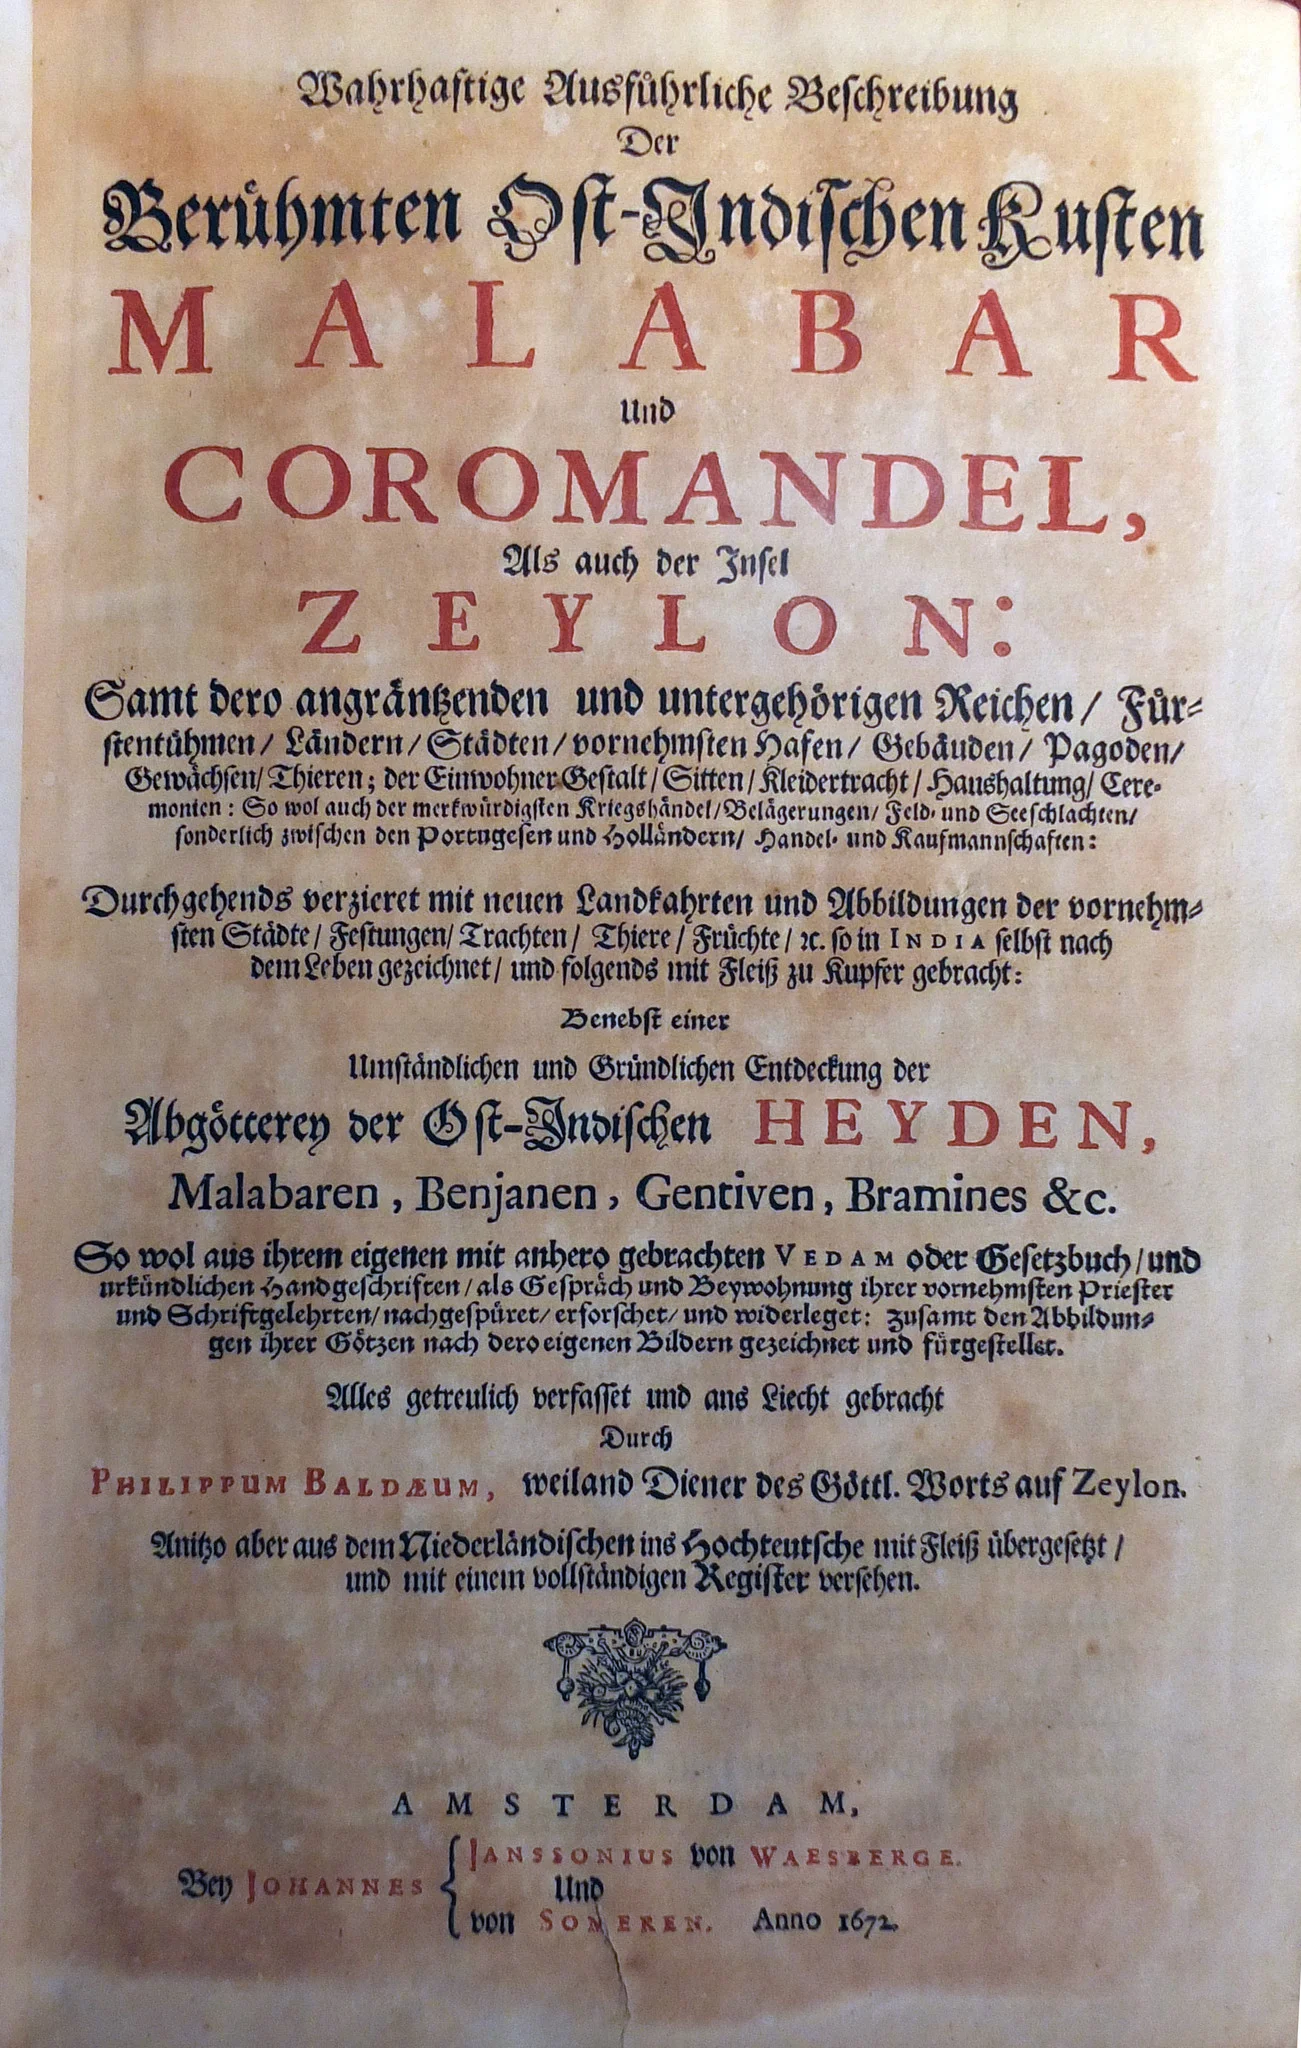 Wahrhaftige Ausführliche Beschreibung
Der
Berühmten Ost-Indischen Kusten
MALABAR
Und
COROMANDEL,
Als auch der Insel
ZEYLON:
Samt dero angräntzenden und untergehörigen Reichen/ Für-
stentühmen/ Ländern/ Städten/ vornehmsten Hafen/ Gebäuden/ Pagoden/
Gewächsen/ Thieren; der Einwohner Gestalt/ Sitten/ Kleidertracht/ Haushaltung/ Cere-
monien: So wol auch der merkwürdigsten Kriegshändel/ Belägerungen/ Feld- und Seeschlachten/
sonderlich zwischen den Portugesen und Holländern/ Handel- und Kaufmannschaften:
Durchgehends verzieret mit neuen Landkahrten und Abbildungen der vornehm-
sten Städte/ Festungen/ Trachten/ Thiere/ Früchte/ ꝛc. so in INDIA selbst nach
dem Leben gezeichnet/ und folgends mit Fleiß zu Kupfer gebracht:
Benebst einer
Umständlichen und Gründlichen Entdeckung der
Abgötterey der Ost-Indischen HEYDEN,
Malabaren, Benjanen, Gentiven, Bramines &c.
So wol aus ihrem eigenen mit anhero gebrachten VEDAM oder Gesetzbuch/ und
urkündlichen Handgeschriften/ als Gespräch und Beywohnung ihrer vornehmsten Priester
und Schriftgelehrten/ nachgespüret/ erforschet/ und widerleget: zusamt den Abbildun-
gen ihrer Götzen nach dero eigenen Bildern gezeichnet und fürgestellet.
Alles getreulich verfasset und ans Liecht gebracht
Durch
PHILIPPUM BALDÆUM, weiland Diener des Göttl. Worts auf Zeylon.
Anitzo aber aus dem Niederländischen ins Hochteutsche mit Fleiß übergesetzt/
und mit einem vollständigen Register versehen.
AMSTERDAM,
JANSSONIUS von WAESBERGE.
Bey JOHANNES { Und
von SOMEREN. Anno 1672.